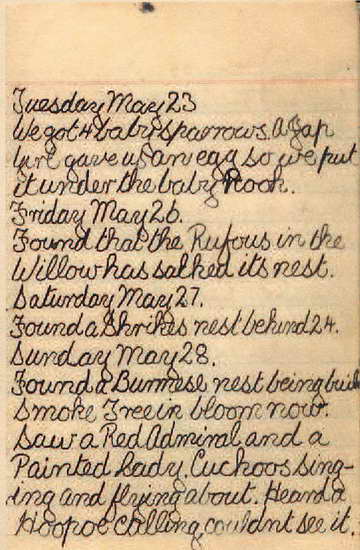 Tuesday May 23
We got 4 baby sparrows. A Jap
gave us an egg so we put
it under the baby Rook.
Friday May 26.
Found that the Rufous in the
Willow has salked its nest.
Saturday May 27.
Found a Shrikes nest behind 24.
Sunday May 28.
Found a Burmese nest being buil
Smoke Tree in bloom now.
Saw a Red Admiral and a
Painted Lady. Cuckoos sing-
ing and flying about. Heard a
Hoopoe calling, couldnt see it.